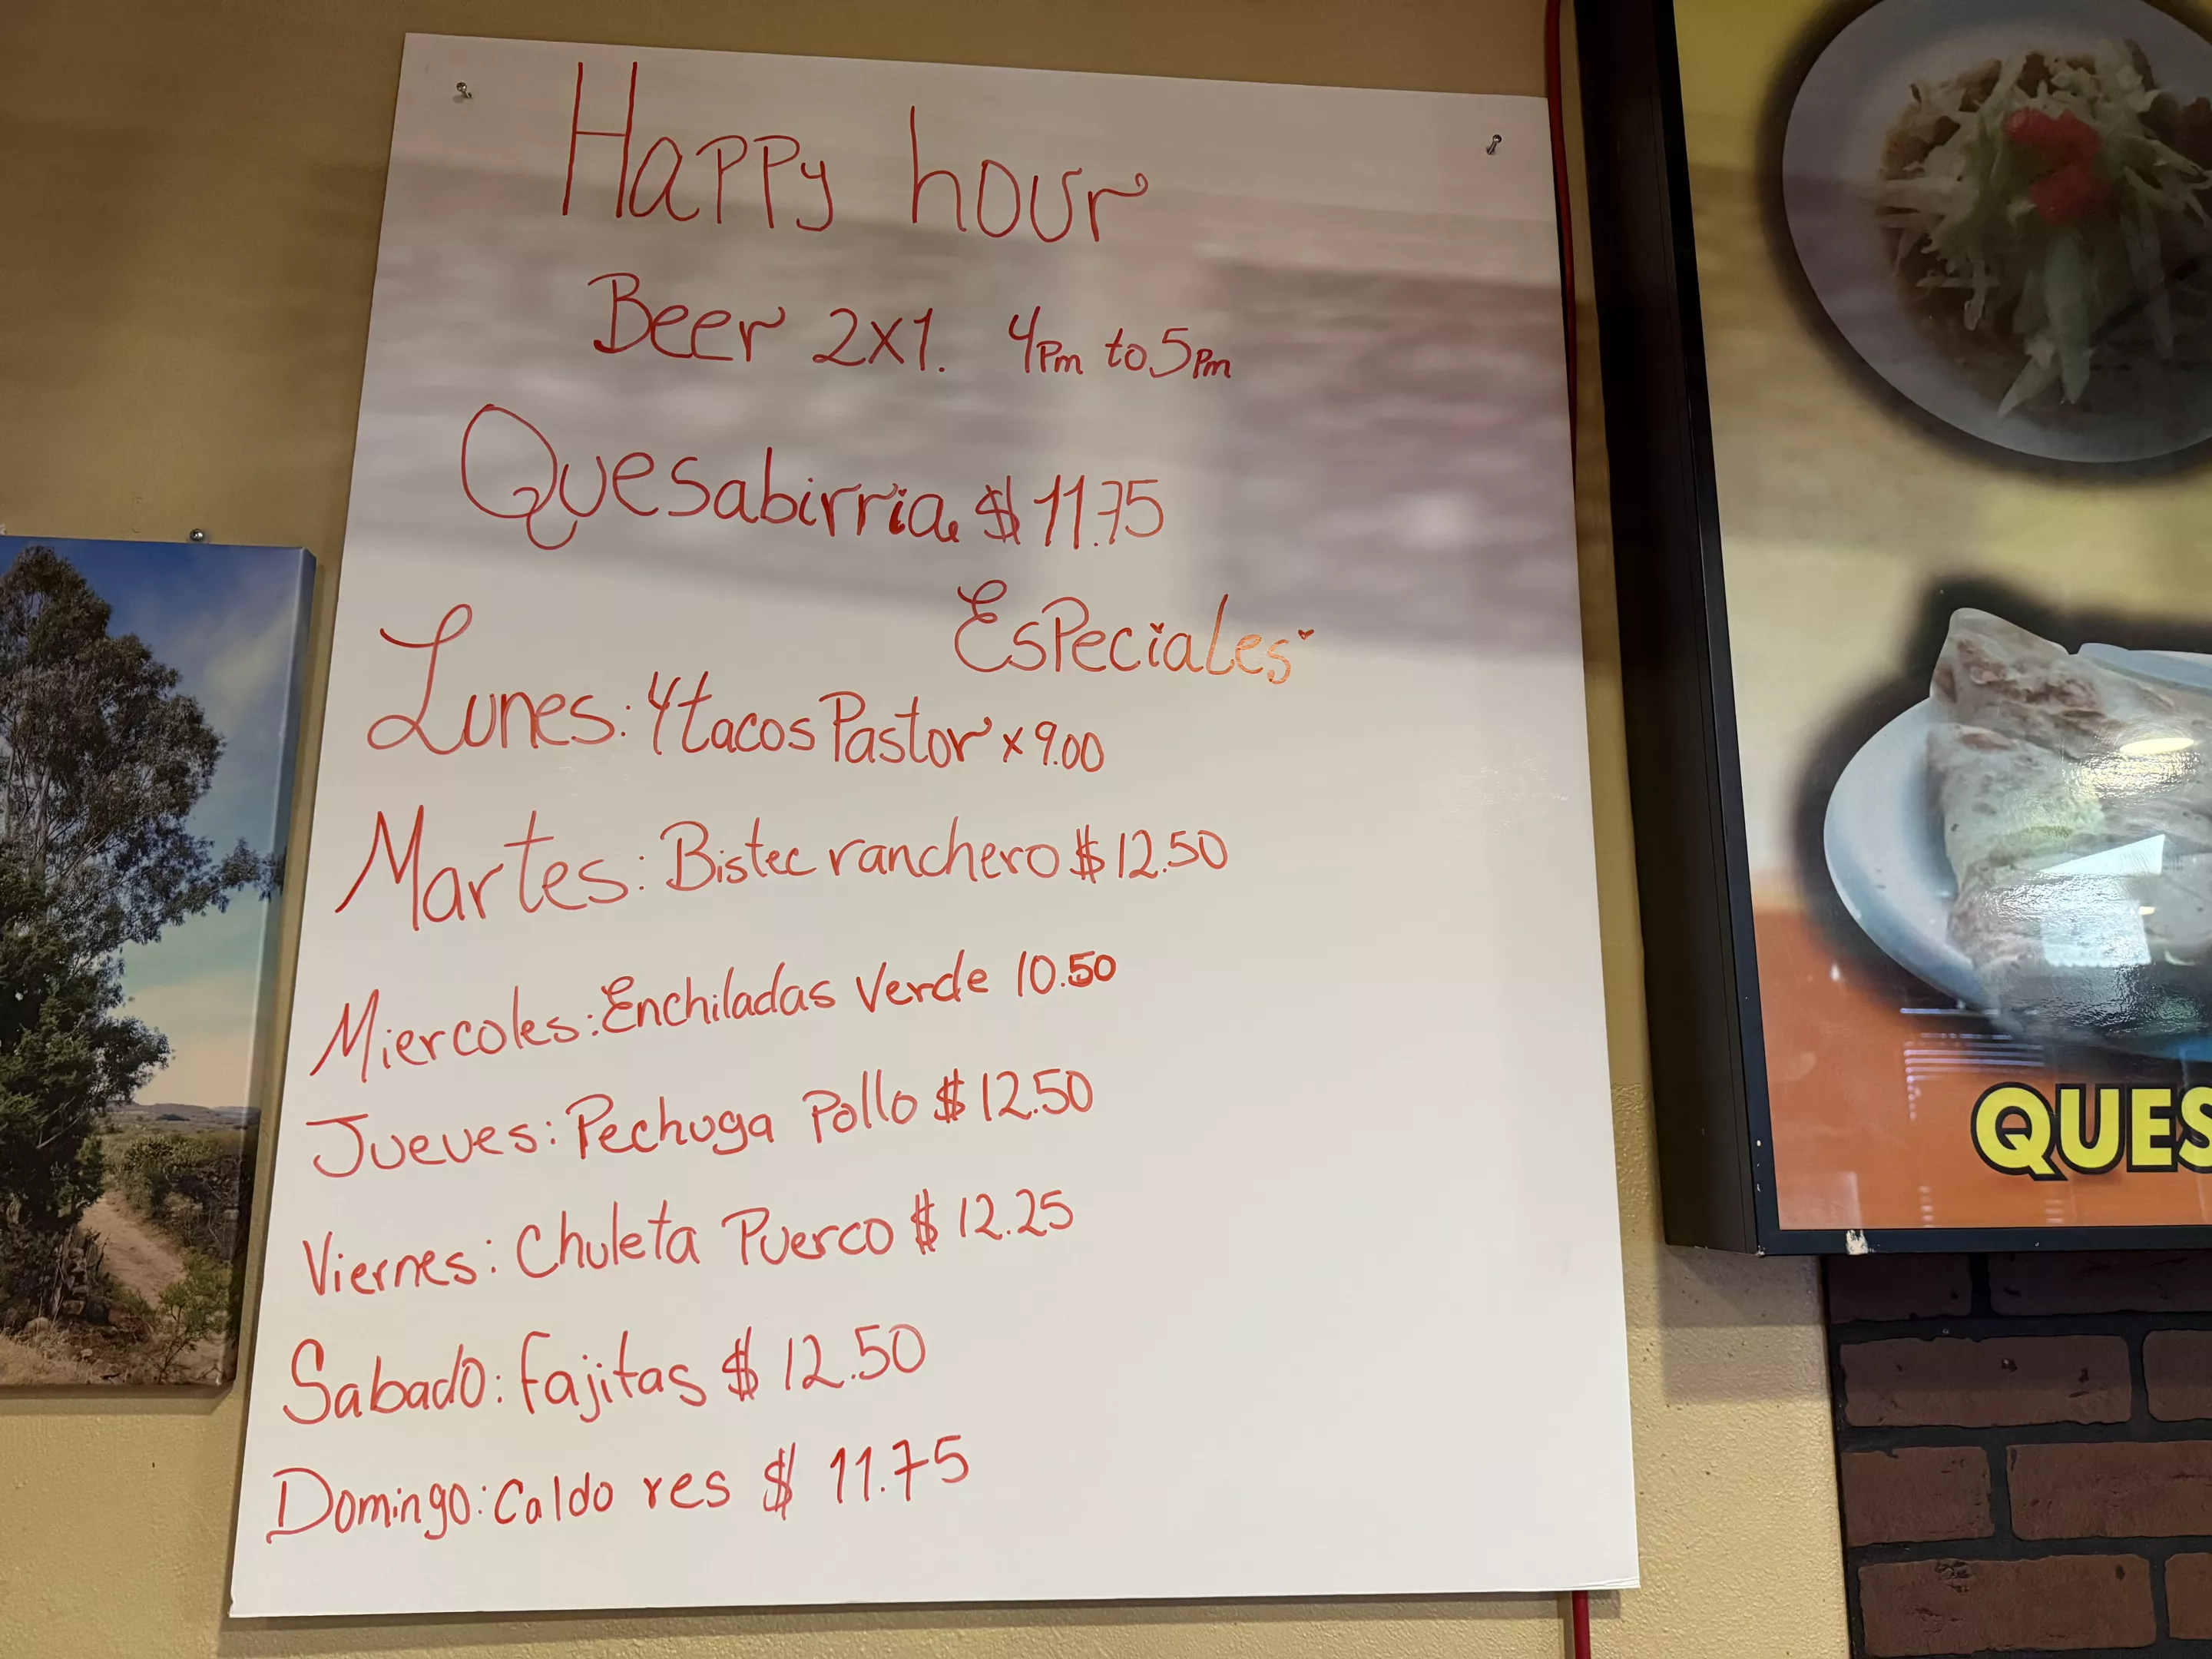 Happy hour
Beer 2x1. 4Pm to 5Pm
Quesabirria $11.75
Especiales
Lunes: 4 tacos Pastor x 9.00
Martes: Bistec ranchero $12.50
Miercoles: Enchiladas Verde 10.50
Jueves: Pechuga Pollo $12.50
Viernes: Chuleta Puerco $12.25
Sabado: Fajitas $12.50
Domingo: Caldo res $11.75
QUES